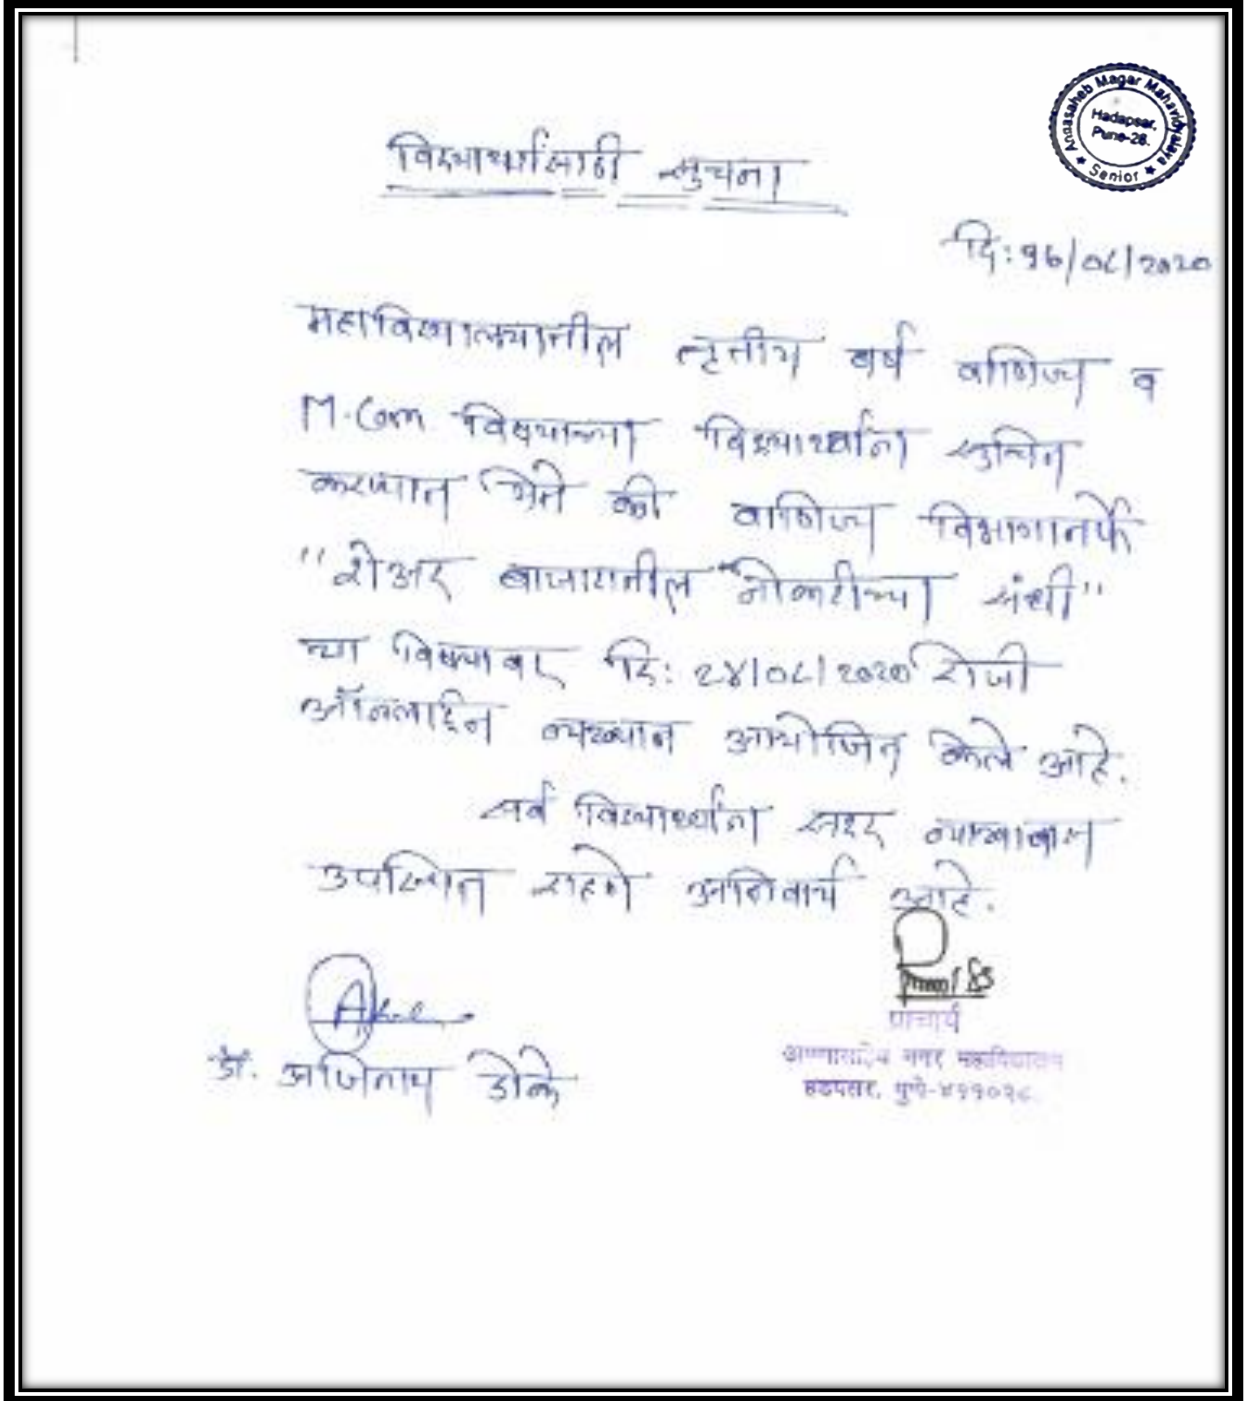 Annasaheb Magar Mahavidyalaya
Hadapsar,
Pune-28.
★ Senior ★
विद्यार्थ्यांसाठी सुचना
दि: १७/०८/२०२०
महाविद्यालयातील तृतीय वर्ष वाणिज्य व
M.Com विषयाच्या विद्यार्थ्यांना सुचित
करण्यात येते की वाणिज्य विभागातर्फे
"शेअर बाजारातील नोकरीच्या संधी"
या विषयावर दि: २४/०८/२०२० रोजी
ऑनलाईन व्याख्यान आयोजित केले आहे.
सर्व विद्यार्थ्यांना सदर व्याख्यानास
उपस्थित राहणे अनिवार्य आहे.
प्राचार्य
अण्णासाहेब मगर महाविद्यालय
हडपसर, पुणे-४११०२८.
डॉ. अजिनाथ डोके